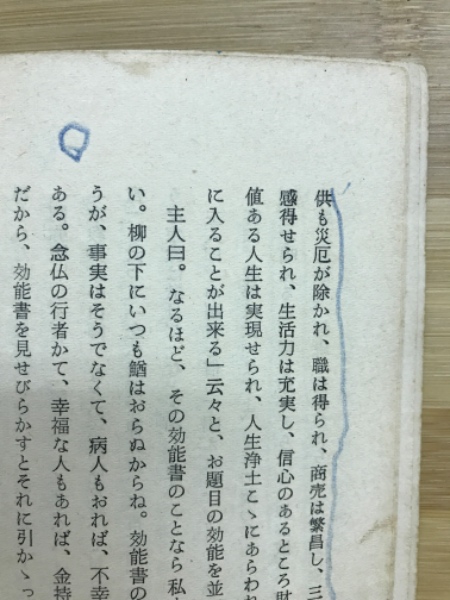 供も災厄が除かれ、職は得られ、商売は繁昌し、三
感得せられ、生活力は充実し、信心のあるところ財
値ある人生は実現せられ、人生浄土こゝにあらわれ
に入ることが出来る」云々と、お題目の効能を並
主人曰。なるほど、その効能書のことなら私
い。柳の下にいつも鰌はおらぬからね。効能書の
うが、事実はそうでなくて、病人もおれば、不幸
ある。念仏の行者かて、幸福な人もあれば、金持
だから、効能書を見せびらかすとそれに引かゝっ